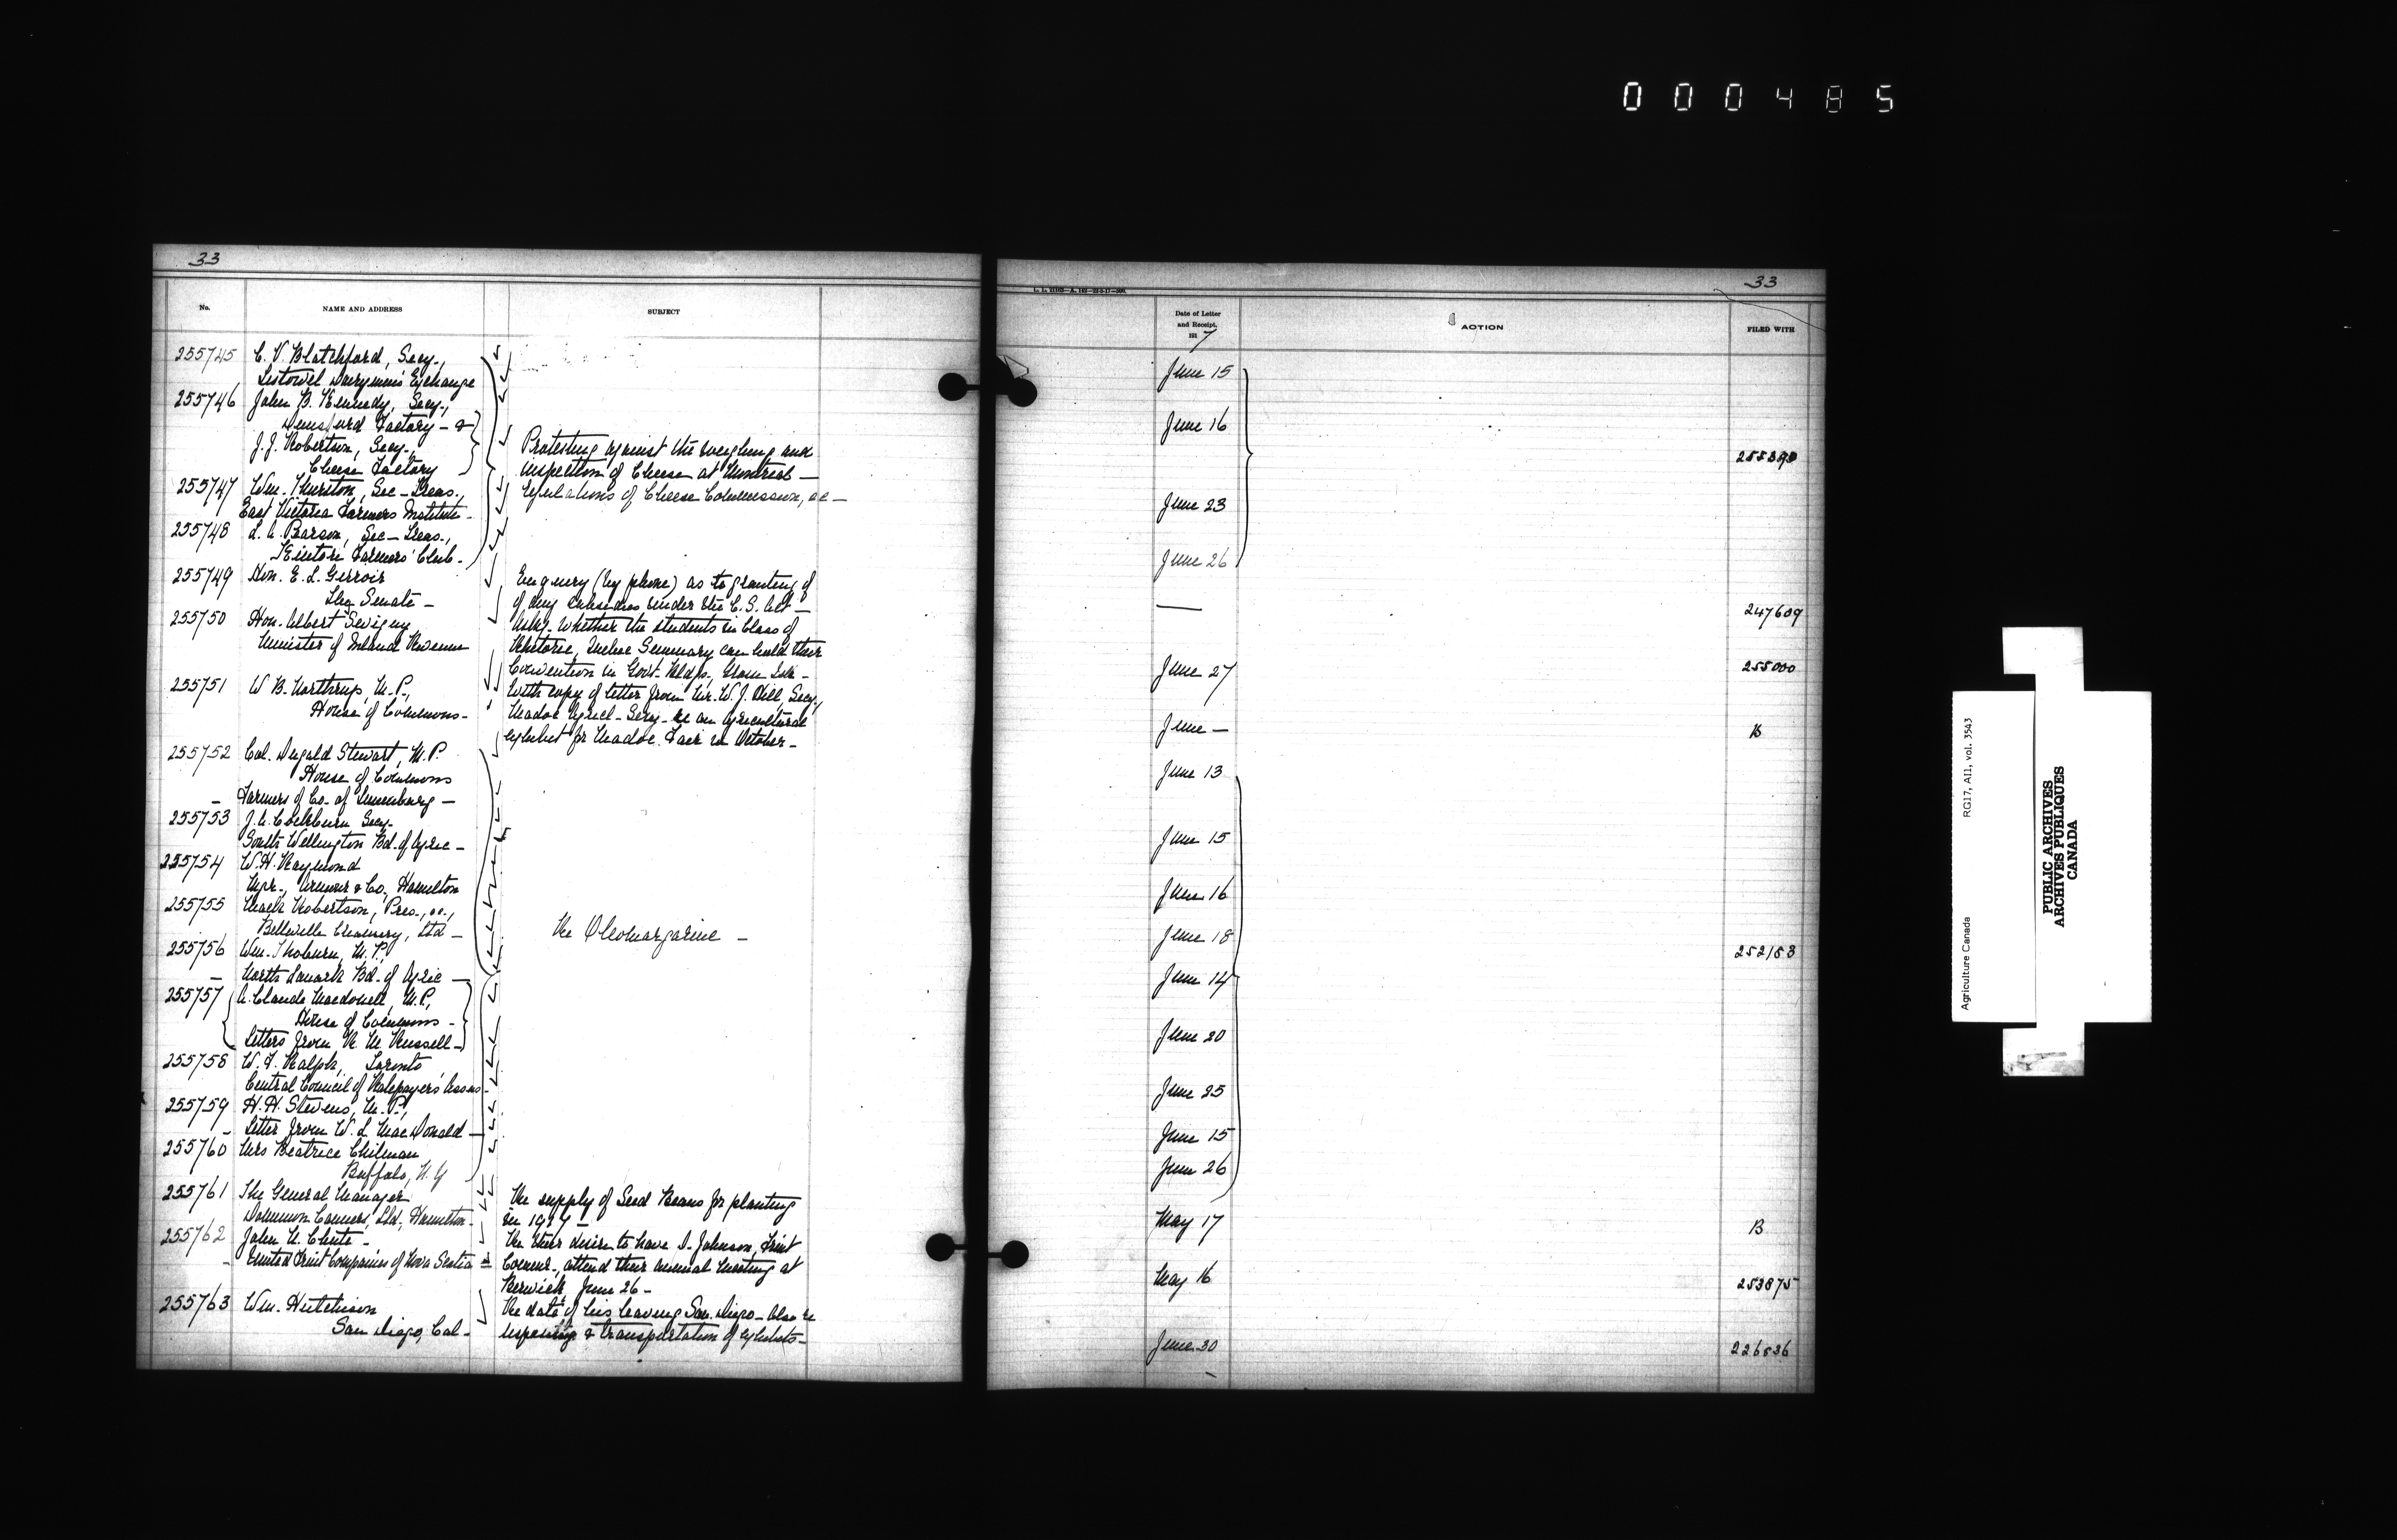 000485
33
No.
NAME AND ADDRESS
SUBJECT
255745 C. V. Blatchford, Secy.,
Listowel Dairymen's Exchange
255746 John B. Kennedy, Secy.,
Factory - &
J. J. Robertson, Secy.,
Cheese Factory
Protesting against the weighing and
inspection of Cheese at Montreal —
255747 Wm. Thurston, Sec-Treas.,
Regulations of Cheese Commission, &c —
East Victoria Farmers Institute -
255748 L. A. Pearson, Sec-Treas.,
Kintore Farmers' Club -
255749 Hon. E. L. Girroir
The Senate -
Enquiry (by phone) as to granting of
of any subsidies under the C. S. Act —
255750 Hon. Albert Sevigny
Minister of Inland Revenue
Asks whether the students in Class of
Rhetoric, Quebec Seminary can hold their
Convention in Govt. Bldgs.,
255751 W. B. Northrup, M.P.,
House of Commons -
With copy of letter from Mr. W. J. Hill, Secy.,
Madoc Agricl. Socy. re an Agricultural
exhibit for Madoc Fair in October -
255752 Col. Dugald Stewart, M.P.
House of Commons
- Farmers of Co. of Lunenburg —
255753 J. A. Cockburn Secy.
South Wellington Bd. of Agric -
255754 W. H. Raymond
Mgr., Armour & Co., Hamilton
255755 Mack Robertson, Pres., &c.,
Belleville Creamery, Ltd -
Re Oleomargarine -
255756 Wm. Thoburn, M.P.,
- North Lanark Bd. of Agric —
255757 A. Claude Macdonell, M.P.,
House of Commons -
Letters from R. M. Russell -
255758 W. F. Ralph, Toronto
Central Council of Ratepayers' Assns -
255759 H. H. Stevens, M.P.,
- Letter from W. L. MacDonald —
255760 Mrs Beatrice Chilman
Buffalo, N.Y
255761 The General Manager
Dominion Canners, Ltd., Hamilton -
Re supply of Seed Beans for planting
in 1917 -
255762 John N. Chute -
- United Fruit Companies of Nova Scotia
Re their desire to have D. Johnson, Fruit
Commr., attend their annual meeting at
Berwick June 26 -
255763 Wm. Hutchison
San Diego, Cal -
Re date of his leaving San Diego - Also re
& transportation of exhibits -
33
Date of Letter
and Receipt,
191 7
ACTION
FILED WITH
June 15
June 16
255390
June 23
June 26
—
247609
June 27
255000
June —
B
June 13
June 15
June 16
June 18
252153
June 14
June 20
June 25
June 15
June 26
May 17
B
May 16
253875
June 30
226836
Agriculture Canada
RG17, AII, vol. 3543
PUBLIC ARCHIVES
ARCHIVES PUBLIQUES
CANADA